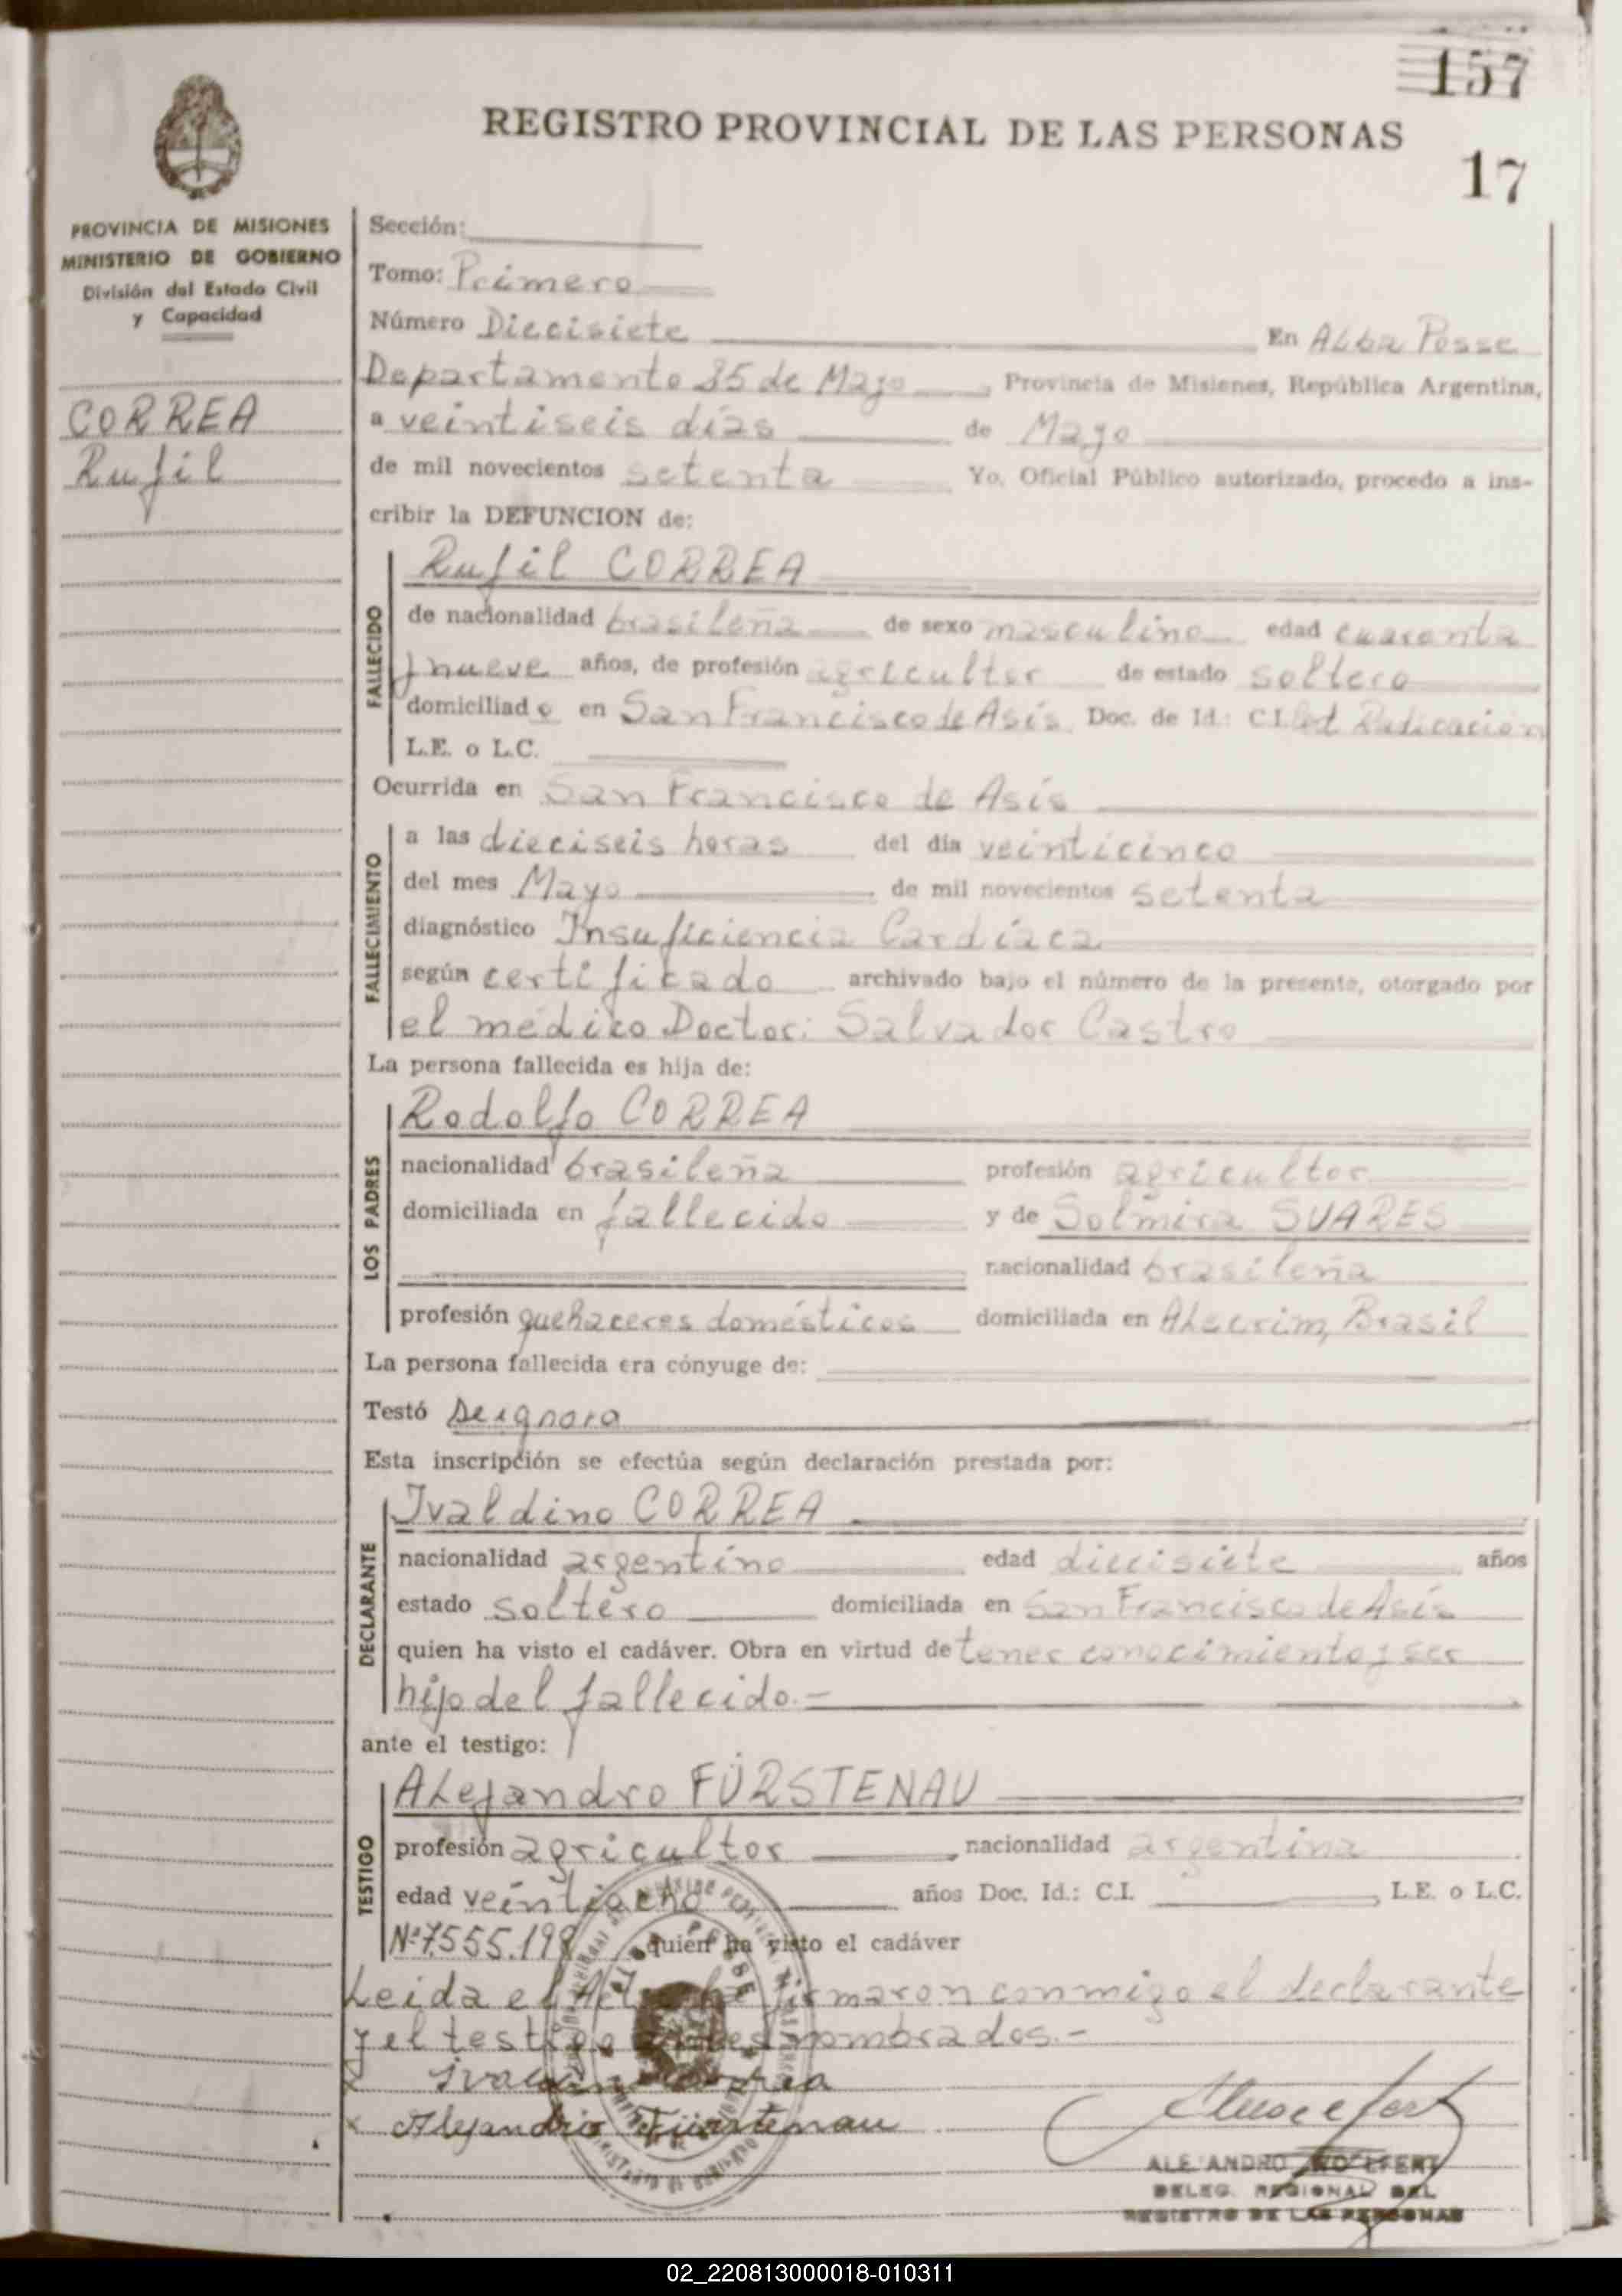 157
REGISTRO PROVINCIAL DE LAS PERSONAS
17
PROVINCIA DE MISIONES
MINISTERIO DE GOBIERNO
División del Estado Civil
y Capacidad
CORREA
Rufil
Sección:
Tomo: Primero
Número Diecisiete En Alba Posse
Departamento 25 de Mayo, Provincia de Misiones, República Argentina,
a veintiseis días de Mayo
de mil novecientos setenta Yo, Oficial Público autorizado, procedo a ins-
cribir la DEFUNCION de:
FALLECIDO
Rufil CORREA
de nacionalidad brasileña de sexo masculino edad cuarenta
y nueve años, de profesión agricultor de estado soltero
domiciliado en San Francisco de Asís Doc. de Id.: C.I. Radicación
L.E. o L.C.
Ocurrida en San Francisco de Asís
FALLECIMIENTO
a las dieciseis horas del día veinticinco
del mes Mayo, de mil novecientos setenta
diagnóstico Insuficiencia Cardíaca
según certificado archivado bajo el número de la presente, otorgado por
el médico Doctor: Salvador Castro
La persona fallecida es hija de:
LOS PADRES
Rodolfo CORREA
nacionalidad brasileña profesión agricultor
domiciliada en fallecido y de Solmira SUARES
nacionalidad brasileña
profesión quehaceres domésticos domiciliada en Alecrim, Brasil
La persona fallecida era cónyuge de:
Testó Se ignora
Esta inscripción se efectúa según declaración prestada por:
DECLARANTE
Ivaldino CORREA
nacionalidad argentino edad diecisiete años
estado soltero domiciliada en San Francisco de Asís
quien ha visto el cadáver. Obra en virtud de tener conocimiento y ser
hijo del fallecido.-
ante el testigo:
TESTIGO
Alejandro FÜRSTENAU
profesión agricultor, nacionalidad argentina
edad veintiocho años Doc. Id.: C.I. , L.E. o L.C.
Nº 7.555.198 quien ha visto el cadáver
Leida el Acta la firmaron conmigo el declarante
y el testigo antes nombrados.-
x Ivaldino Correa
x Alejandro Fürstenau
ALEJANDRO WOLFERT
DELEG. REGIONAL DEL
REGISTRO DE LAS PERSONAS
02_220813000018-010311